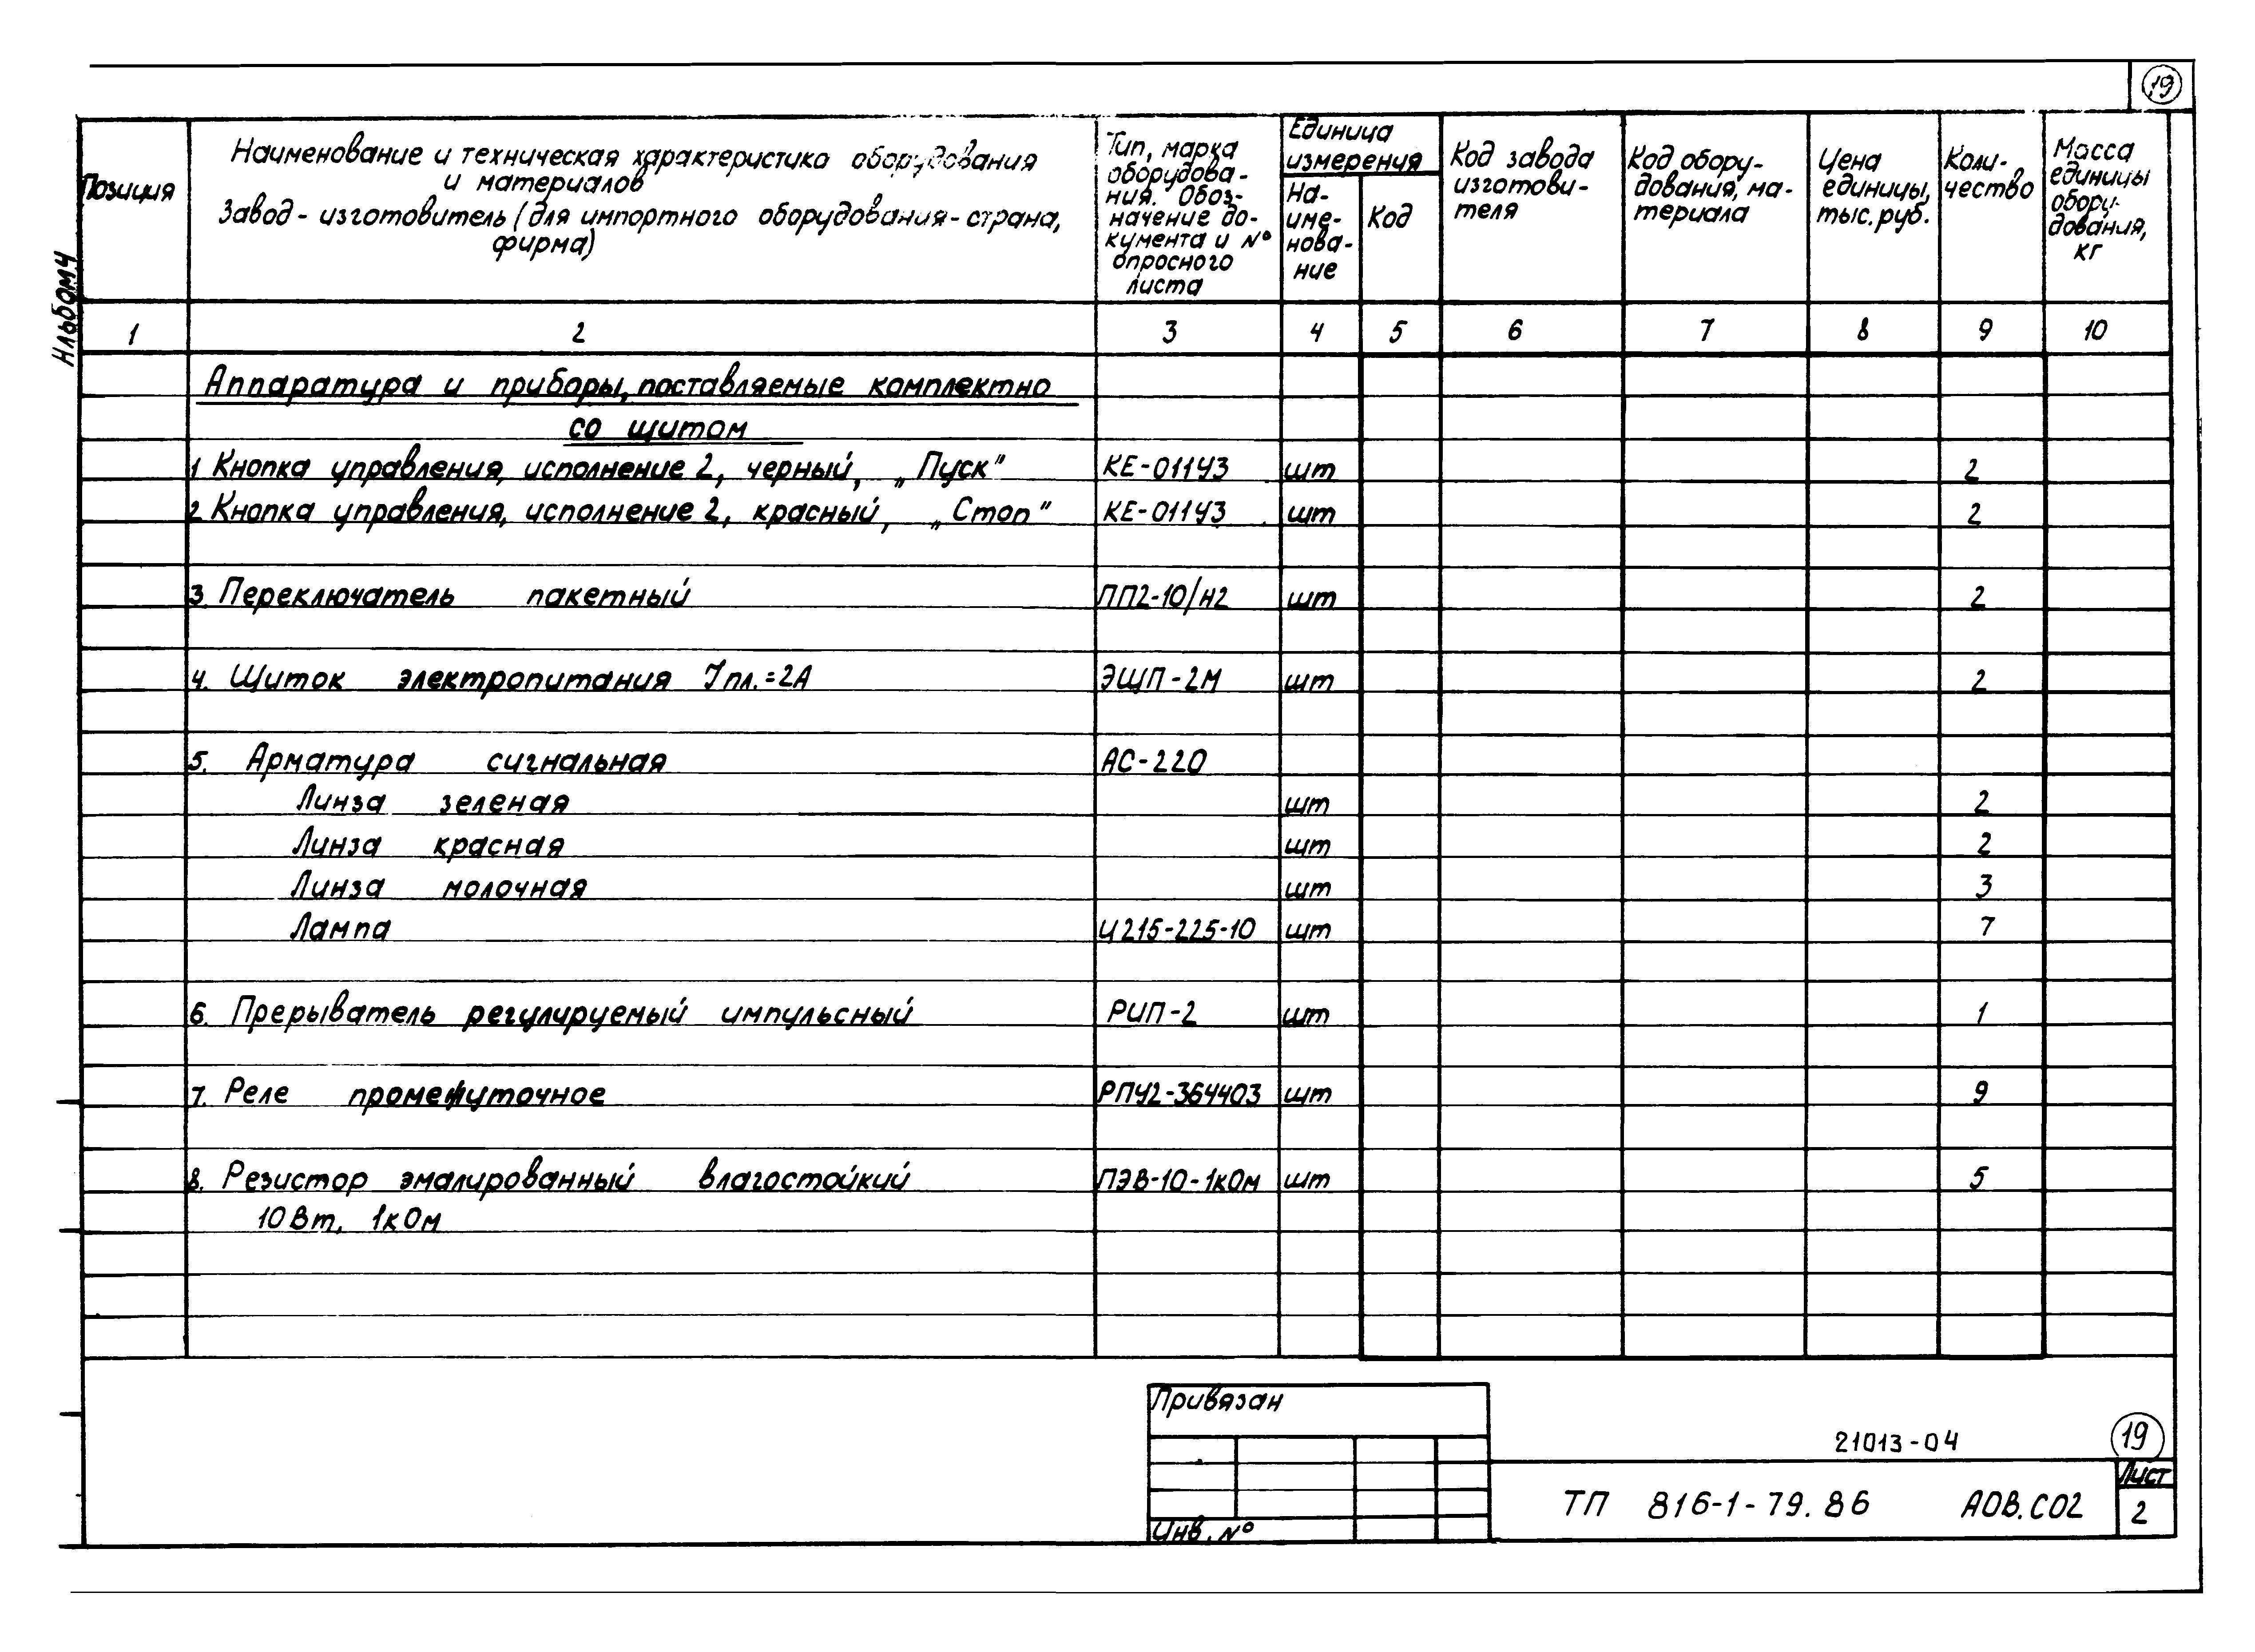 19
Альбом 4
Позиция
Наименование и техническая характеристика оборудования
и материалов
Завод-изготовитель (для импортного оборудования-страна,
фирма)
Тип, марка
оборудова-
ния. Обоз-
начение до-
кумента и №
опросного
листа
Единица
измерения
На-
име-
нова-
ние
Код
Код завода
изготови-
теля
Код обору-
дования, ма-
териала
Цена
единицы,
тыс. руб.
Коли-
чество
Масса
единицы
обору-
дования,
кг
1 2 3 4 5 6 7 8 9 10
Аппаратура и приборы, поставляемые комплектно
со щитом
1 Кнопка управления, исполнение 2, черный, „Пуск" КЕ-011У3 шт 2
2 Кнопка управления, исполнение 2, красный, „Стоп" КЕ-011У3 шт 2
3. Переключатель пакетный ПП2-10/Н2 шт 2
4. Щиток электропитания Iпл.=2А ЭЩП-2М шт 2
5. Арматура сигнальная АС-220
Линза зеленая шт 2
Линза красная шт 2
Линза молочная шт 3
Лампа Ц215-225-10 шт 7
6. Прерыватель регулируемый импульсный РИП-2 шт 1
7. Реле промежуточное РПУ2-364403 шт 9
8. Резистор эмалированный влагостойкий ПЭВ-10-1кОм шт 5
10Вт, 1кОм
Привязан
Инв. №
21013-04
19
ТП 816-1-79.86 АОВ.СО2
Лист
2